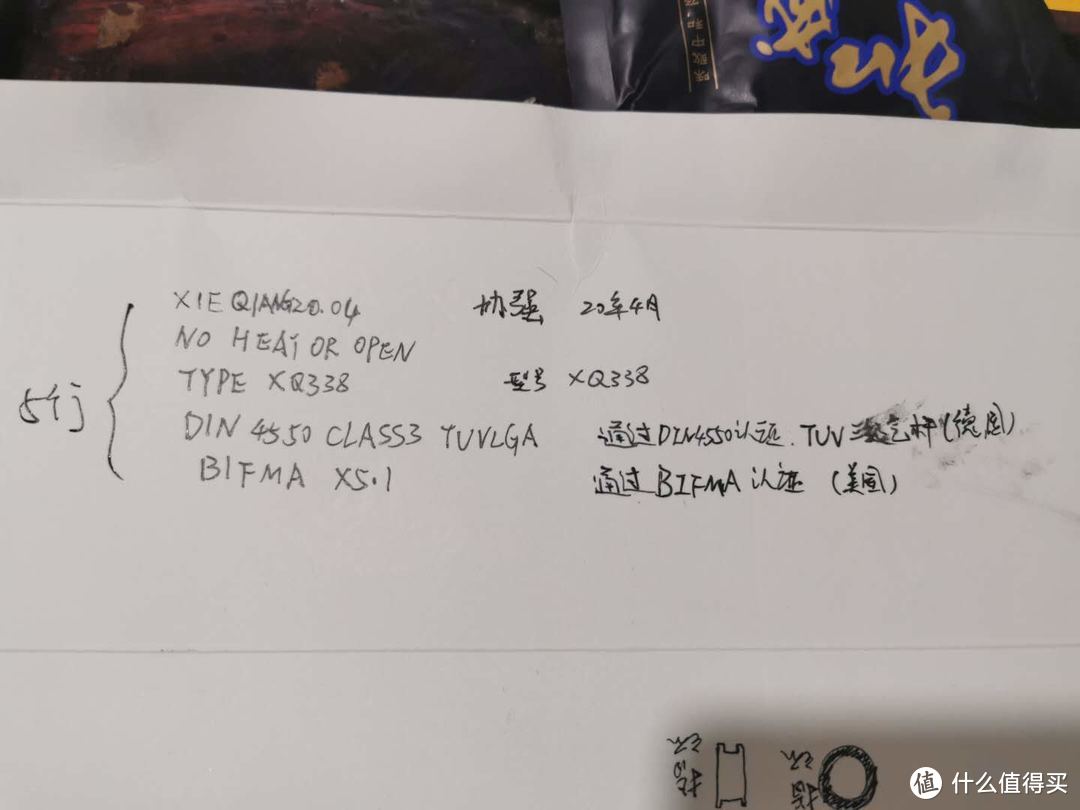 XIE QIANG20.04 协强 20年4月
NO HEAT OR OPEN
TYPE XQ338 型号 XQ338
5行
DIN 4550 CLASS3 TUVLGA 通过DIN4550认证.TUV三级气杆(德国)
BIFMA X5.1 通过BIFMA认证(美国)
值 什么值得买